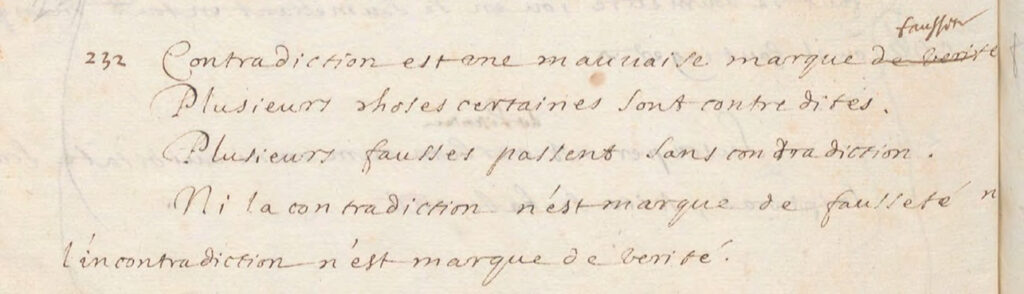 fausseté
232 Contradiction est une mauuaise marque de verité
Plusieurs choses certaines sont contredites.
Plusieurs fausses passent sans contradiction.
Ni la contradiction n'est marque de fausseté n
l'incontradiction n'est marque de verité.